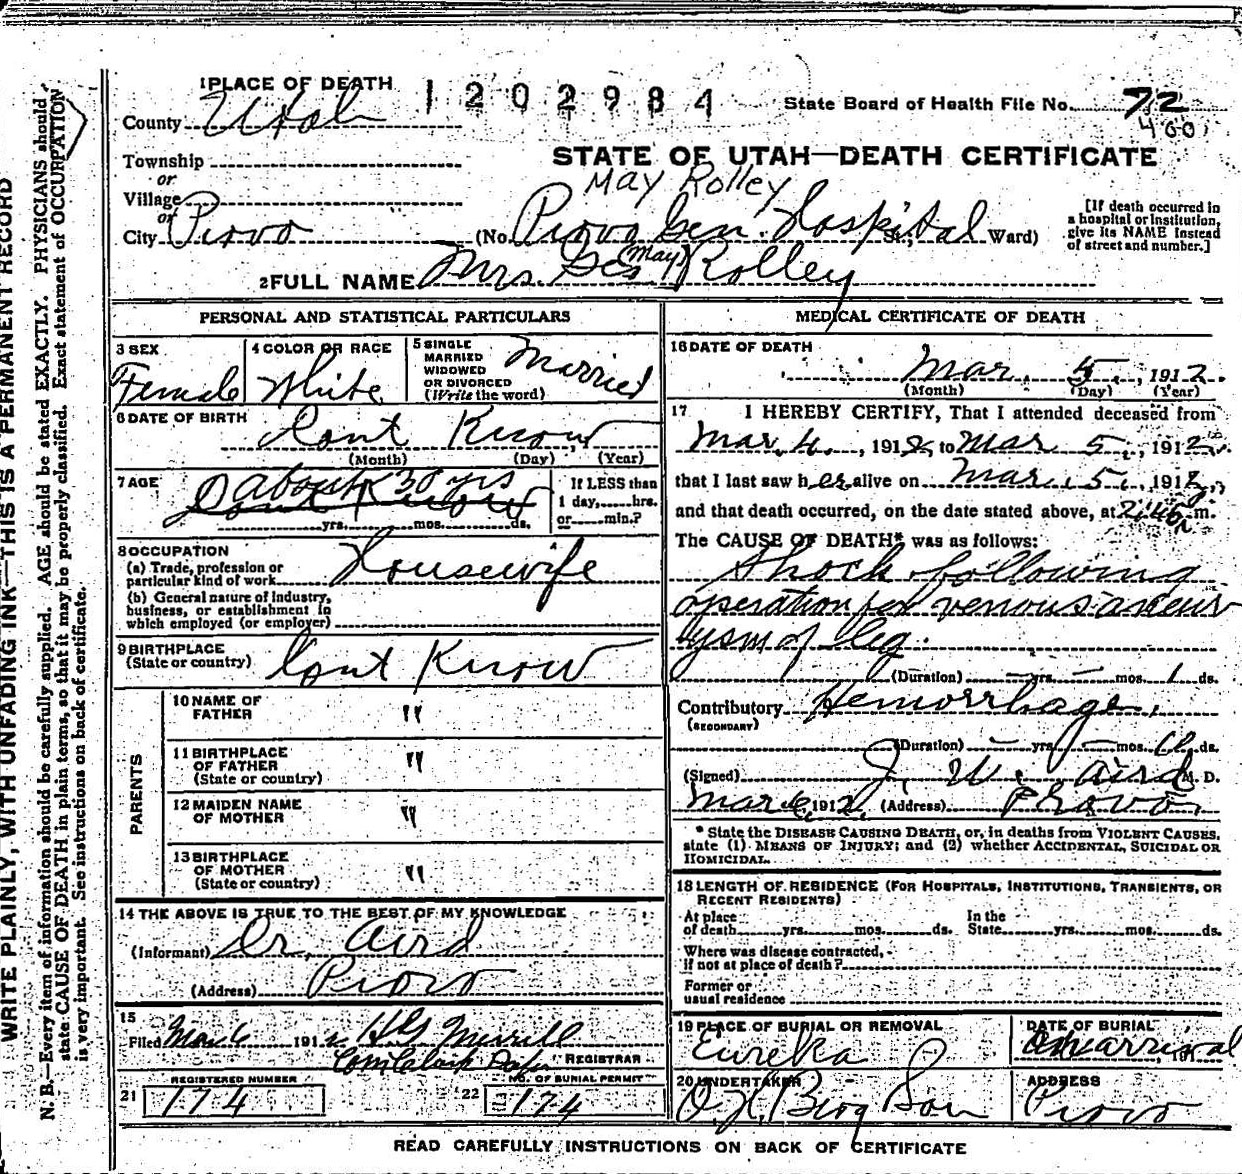 WRITE PLAINLY, WITH UNFADING INK—THIS IS A PERMANENT RECORD
N. B.—Every item of information should be carefully supplied. AGE should be stated EXACTLY. PHYSICIANS should
state CAUSE OF DEATH in plain terms, so that it may be properly classified. Exact statement of OCCUPATION
is very important. See instructions on back of certificate.
1 PLACE OF DEATH
1202984
State Board of Health File No. 72
400
County Utah
STATE OF UTAH—DEATH CERTIFICATE
Township
or
May Rolley
Village
or
City Provo (No. Provo Gen. Hospital St., Ward)
[If death occurred in
a hospital or institution,
give its NAME instead
of street and number.]
2 FULL NAME Mrs. Geo (May) Rolley
PERSONAL AND STATISTICAL PARTICULARS
3 SEX
Female
4 COLOR OR RACE
White
5 SINGLE
MARRIED
WIDOWED
OR DIVORCED
(Write the word)
Married
6 DATE OF BIRTH
Dont Know
(Month) (Day) (Year)
7 AGE
about 30 yrs
Dont Know
yrs. mos. ds.
If LESS than
1 day, hrs.
or min.?
8 OCCUPATION
(a) Trade, profession or
particular kind of work Housewife
(b) General nature of industry,
business, or establishment in
which employed (or employer)
9 BIRTHPLACE
(State or country) Dont Know
PARENTS
10 NAME OF
FATHER "
11 BIRTHPLACE
OF FATHER
(State or country) "
12 MAIDEN NAME
OF MOTHER "
13 BIRTHPLACE
OF MOTHER
(State or country) "
14 THE ABOVE IS TRUE TO THE BEST OF MY KNOWLEDGE
(Informant) Dr. Aird
(Address) Provo
15
Filed Mar 6 1912 Merrill
REGISTRAR
REGISTERED NUMBER
21 174
NO. OF BURIAL PERMIT
22 174
MEDICAL CERTIFICATE OF DEATH
16 DATE OF DEATH
Mar. 5, 1912.
(Month) (Day) (Year)
17 I HEREBY CERTIFY, That I attended deceased from
Mar. 4, 1912, to Mar 5, 1912,
that I last saw her alive on Mar. 5, 1912,
and that death occurred, on the date stated above, at 2:45 m.
The CAUSE OF DEATH* was as follows:
Shock following
operation for venous aneur
lysm of leg.
(Duration) yrs. mos. 1 ds.
Contributory Hemorrhage.
(SECONDARY)
(Duration) yrs. mos. ds.
(Signed) J. W. Aird M. D.
Mar 6, 1912. (Address) Provo
* State the DISEASE CAUSING DEATH, or, in deaths from VIOLENT CAUSES,
state (1) MEANS OF INJURY; and (2) whether ACCIDENTAL, SUICIDAL OR
HOMICIDAL.
18 LENGTH OF RESIDENCE (FOR HOSPITALS, INSTITUTIONS, TRANSIENTS, OR
RECENT RESIDENTS)
At place
of death yrs. mos. ds.
In the
State yrs. mos. ds.
Where was disease contracted,
If not at place of death?
Former or
usual residence
19 PLACE OF BURIAL OR REMOVAL
Eureka
DATE OF BURIAL
On arrival
20 UNDERTAKER
O. H. Berg Son
ADDRESS
Provo
READ CAREFULLY INSTRUCTIONS ON BACK OF CERTIFICATE